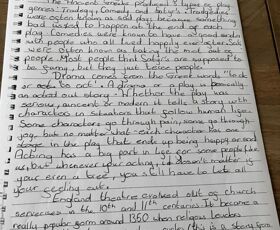 The Ancient Greeks produced 3 types of play
genres: Tragedy, Comedy and Satyr. Tragedys
were often known as sad plays because something
bad useally happens at the end of each
play. Comedies were known to have a good ending
with people who all lived happily ever after. Satyr's
were often known as taking the mick out of
people. Most people think Satyrs are supposed to
be funny, but they just tease people.
Drama comes from the Greek words "to do
or act". A drama or a play is basically
an acted out story. Whether the play was
serious, ancient or modern it tells a story with
characters in situations that follow human life.
Some characters go through pain, some go through
joy, but no matter what each character has one
stage in the play that ends up being happy or sad.
Acting is a big part in life for some people like
us, but whenever your acting, it doesn't matter is
your even a tree, you still have to let all
your feeling out.
England theatre evolved out of church
services in the 10th and 11th centuries. It become a
really popular form around 1350 when religous leaders
(this is a story from